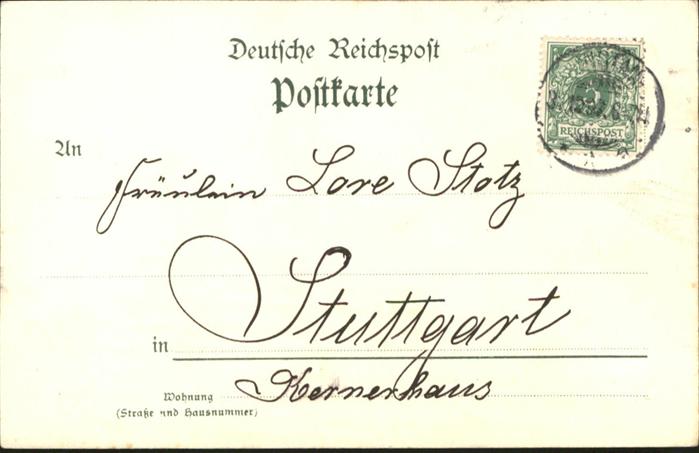 Deutsche Reichspost
Postkarte
5
REICHSPOST
An
Fräulein Lore Stotz
in Stuttgart
Kernerhaus
Wohnung
(Straße und Hausnummer)